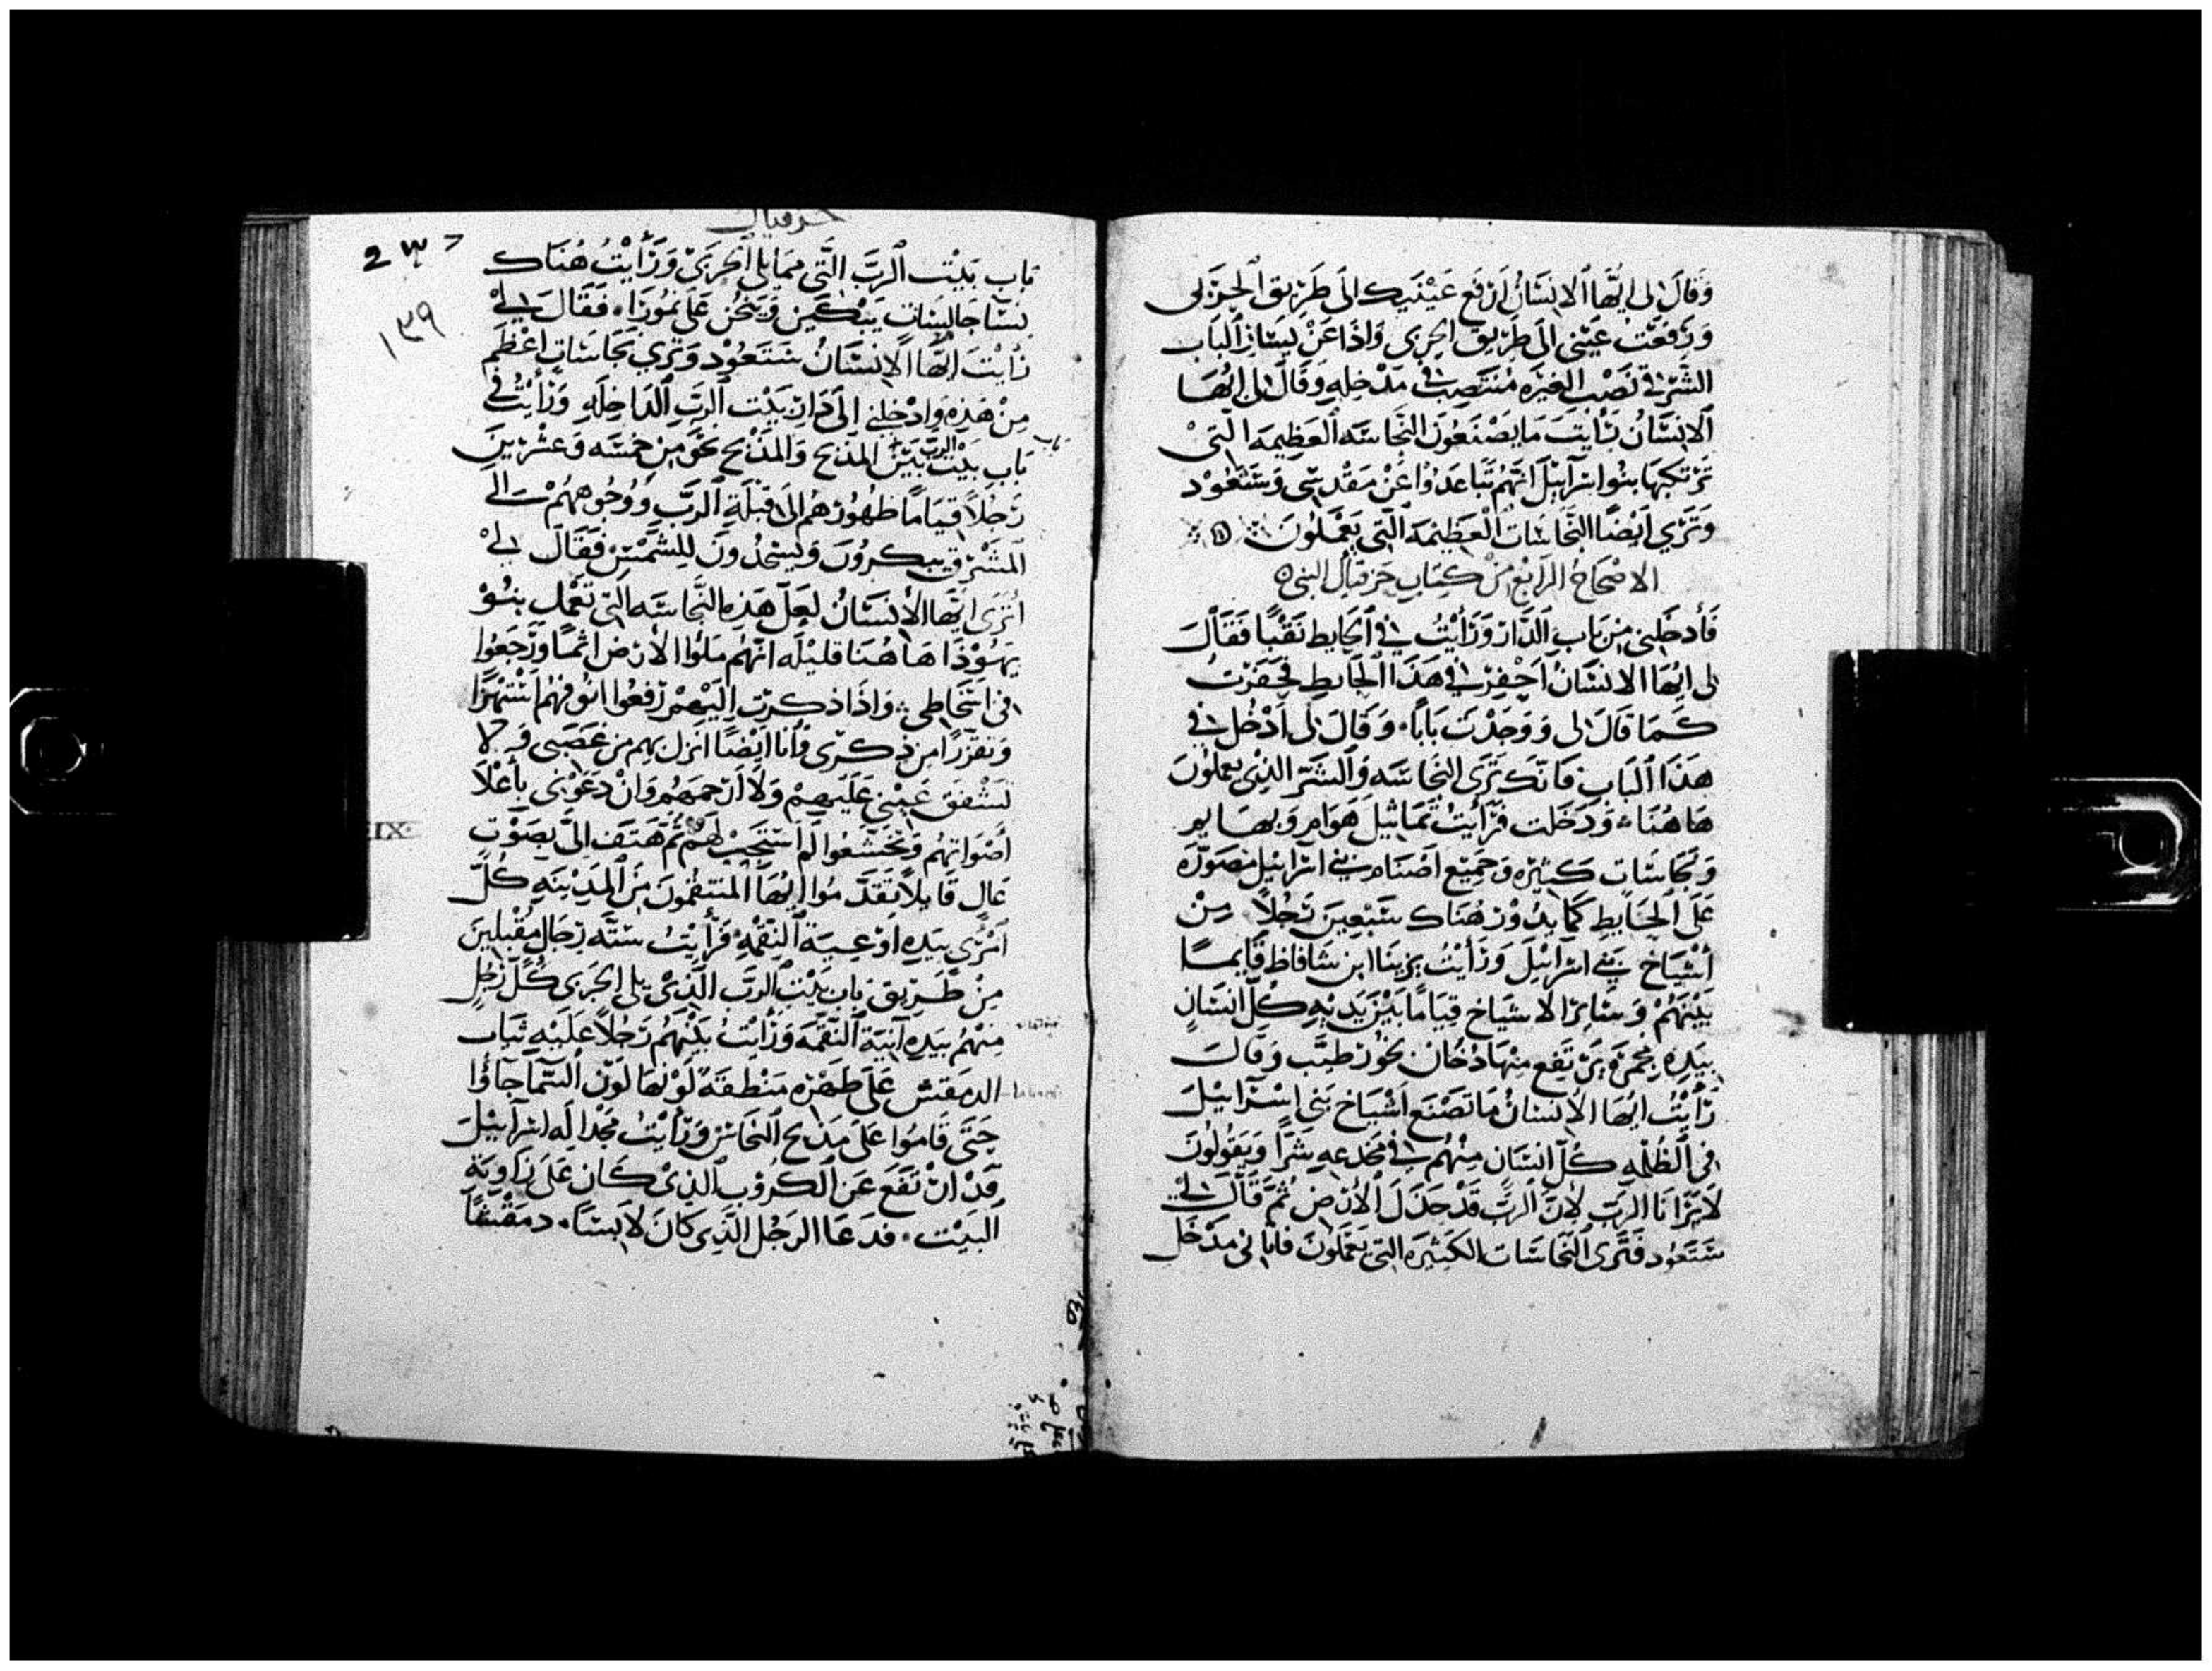 وَقَالَ لى ايُّهَا الانسَانُ ارفَع عَيْنَيك الىَ طَرِيق الجَرَبى
وَرَفَعْتُ عَيْنى الىَ طَرِيق الجربى وَاذَا عَنْ يسَار البَاب
الشَرْقى نَصْب الغيرَه مُنتَصِب فى مَدْخلِهِ وَقَالَ لى ايُّهَا
الانسَانُ رَأيْتَ مَا يَصْنَعُونَ النَّجَاسَه العَظِيمَه الَّتى
تَرْتكبهَا بنُوا اسْرَآئيْل انَّهُم تَبَاعَدُوْا عَنْ مَقْدِسى وَسَتَعُوْد
وَتَرَي ايْضًا النَّجَاسَات العَظِيمَه الَّتى يَعْمَلُونَ
الاصْحَاحُ الرَّابِعُ مِنْ كِتَابِ حَزقيَال النبى
فَأدخَلَنى مِن بَابِ الدَّارِ وَرَأيْتُ فى الحَايط نَقْبًا فَقَالَ
لى ايُّهَا الانسَانُ احْفِرْ فى هَذَا الحَايط فحَفَرْتُ
كَمَا قَالَ لى وَوَجَدْت بَابًا وَقَالَ لى ادْخُل فى
هَذَا البَاب فَانّكَ تَرَى النَّجَاسَه وَالشَرّ الذى يعملُونَ
هَا هُنَا وَدَخَلت فَرَأيْتُ تَمَاثيْلَ هَوَام وَبهَايم
وَنجَاسَات كَثيْرَه وَجَمِيْع اصْنَام بنى اسْرَائيْل مصَوّرَه
عَلَى الحَايط كَمَا يدُوْر وَهُنَاك سَبْعِينَ رَجُلاً مِنْ
أشيَاخ بَنى اسْرَائيْلَ وَرَأيْتُ يزينَا ابن شَافَاط قَآيمًا
بَيْنَهُمْ وَسَائِر الاشيَاخ قيَامًا بَيْنَ يَدَيْهِ كلّ انسَانٍ
بيَدِهِ مجمَرَه يَرْتَفِع مِنْهَا دُخَان بخُوْر طيَّب وَقَالَ
رَأيْتُ ايُّهَا الانسَانُ مَا تَصْنَع أشْيَاخ بَنى اسْرَآئيْلَ
فى الظُّلْمَه كلّ انسَانٍ مِنْهُم فى مخْدَعِهِ شَرًّا وَيَقُولُونَ
لاَ يَرَانَا الرَبّ لانَّ الرَّبّ قَدْ خَذَلَ الأرْض ثُمَّ قَالَ لى
سَتَعُود فَتَرَى النَّجَاسَات الكَثيرَه التى يَعْمَلُونَ فاتَا بى مَدْخَل
حزقيال
237
١٣٩
بَاب بَيْت الرَبّ الَّتى ممَا يلى الجَربىَ وَرَأيْتُ هُنَاك
نِسَا جَالِسَات يَبْكِين وَيَنحُن عَلَى تمُوزَا فَقَالَ لى
رَأيْتَ ايُّهَا الانسَانُ سَتَعُوْد وَتَرَي نجَاسَاتٍ اعْظَمُ
مِنْ هَذِهِ وَادْخَلَنى الىَ دَارِ بَيْت الرَبّ الدَاخِلَه وَرَأيْتُ فى
بَابِ بَيْت الرب بَيْنَ المَذبَح وَالمَذبَح نحْو مِن خمْسَه وَعشْرِينَ
رَجُلاً قيَامًا ظهُورهُم الىَ قبْلَةِ الرَبّ وَوُجُوههُمْ الىَ
المَشْرق يبكرُونَ وَيسْجُدُونَ لِلشَّمْسِ فَقَالَ لى
أتَرَى ايُّهَا الانسَانُ لعَلّ هَذِه النَّجَاسَه التى تَعْمل بنُوْ
يهَوْذَا هَا هُنَا قليْلَه انَّهُم مَلؤا الأرْض اثمًا وَرَجَعُوا
فى اسْخَاطى وَاذَا ذكرت اليَهم رَفعُوا انوفهُم اسْتهزًا
وَتقززًا مِن ذِكرى فَأنَا ايْضًا انزل بهم مِن غضَبى وَلا
تَشْفق عَيْنى عَلَيهمْ وَلاَ ارْحمَهُم وَانْ دَعَوْنى بأعْلاَ
أصْوَاتهُم وَتخَشَّعُوا لَمْ اسْتَجِيْب لَهُمْ ثُمَّ هَتف الىَّ بصَوْت
IX
عَالٍ قَايلاً تقدَّمُوا ايُّهَا المنتقمُونَ مِنَ المَدِيْنَهِ كُلّ
امْرَى بيَدِهِ اوْعيَة النّقمَه فَرَأيْتُ سِتَّه رِجَال مُقْبلينَ
مِنْ طَرِيق بَاب بَيْت الرَبّ الَّذى يلى الجَربى كُلّ رَجُلٍ
مِنْهُم بيَدِهِ آنيَة النقمَه وَرَأيْتُ بَيْنَهُم رَجُلاً عَلَيْهِ ثيَاب
الدمَقس عَلَى ظَهْرِه مَنْطقَه لَوْنهَا لَوْن السَّمَا جَاؤُا
حَتَّى قَامُوا عَلَى مَذبَح النحَاس وَرَأيْتُ مَجْدَ اله اسْرَآئيْلَ
قَدْ ارْتَفَع عَنِ الكرُوْب الَّذى كَان عَلَى زَاويَةِ
البَيْت فدَعَا الرَجُل الَّذِى كَانَ لابسًا دمَقْسًا